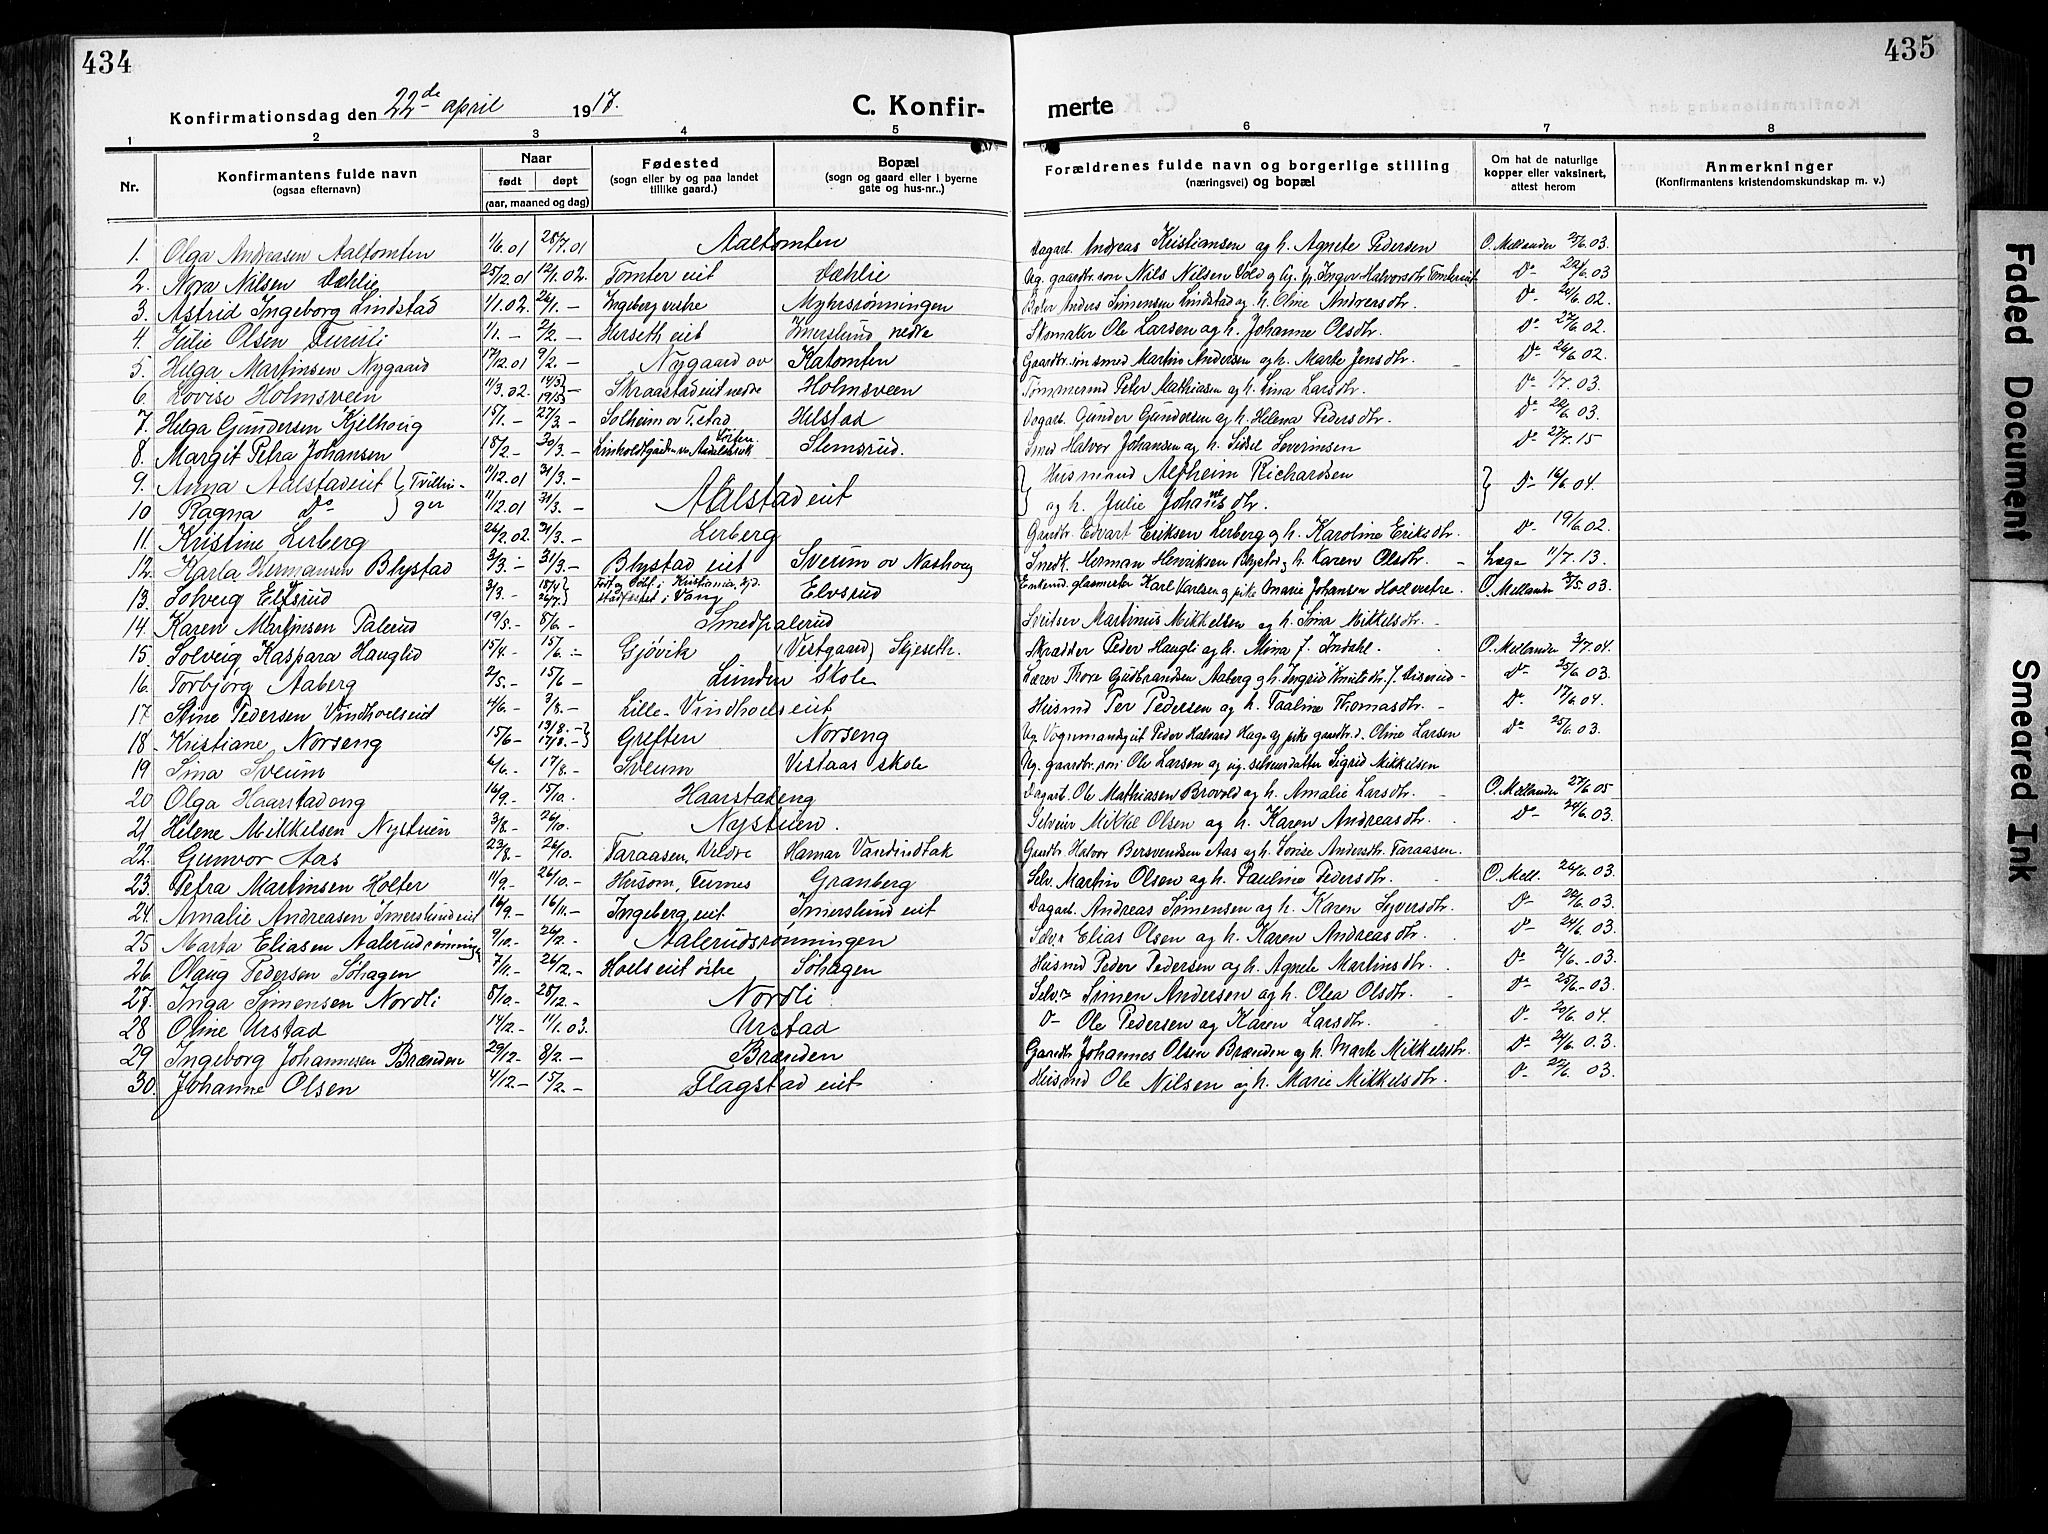 434
435
Konfirmationsdag den 22de april 1917.
C. Konfir-
merte
1 2 3 4 5 6 7 8
Nr.
Konfirmantens fulde navn
(ogsaa efternavn)
Naar
født døpt
(aar, maaned og dag)
Fødested
(sogn eller by og paa landet
tillike gaard.)
Bopæl
(sogn og gaard eller i byerne
gate og hus-nr..)
Forældrenes fulde navn og borgerlige stilling
(næringsvei) og bopæl
Om hat de naturlige
kopper eller vaksinert,
attest herom
Anmerkninger
(Konfirmantens kristendomskundskap m. v.)
1. Olga Andreasen Aaltomten 1/6.01 28/7.01 Aaltomten Dagarb. Andreas Kristiansen og h. Agnete Pedersen O. Mellander 25/6.03.
2. Nora Nilsen Dæhlie 25/12.01 12/1.02. Tomter eit Dæhlie Ug. gaardbr. søn Nils Nilsen Vold og Inger Halvorsdtr. Do 22/6.03
3. Astrid Ingeborg Lindstad 1/1.02. 26/1.— Ingeberg vestre Myhrsrønningen Anders Simensen Lindstad og h. Oline Andreasdtr. Do 24/6.02.
4. Julie Olsen Furuli 1/1.— 2/2.— Herseth eit Imerslund nedre Skomaker Ole Larsen og h. Johanne Olsdtr. Do 27/6.02.
5. Helga Martinsen Nygaard 17/12.01 9/2.— Nygaard ov Katomten Gaardbr. søn smed Martin Andersen og h. Marte Jensdtr. Do 26/6.02.
6. Lovise Holmsveen 11/3.02. 14/3 19/5 — Skraastad eit nedre Holmsveen Tømmermd Peter Mathiasen og h. Lina Larsdtr. Do 1/7.03.
7. Helga Gundersen Kjelhoug 15/1.— 27/3.— Solheim ov Tostad Hilstad Dagarb. Gunder Gundersen og h. Helena Pedersdtr. Do 22/6.03.
8. Margit Petra Johansen 18/2— 30/3.— Løiten. Slemsrud. Smed Halvor Johansen og h. Sidsel Severinsen Do 27/7.15
9. Anna Aalstadeit } Tvillin- 11/12.01 31/3.— } Husmand Alfheim Richardsen
10 Ragna Do } ger 11/12.01 31/3.— Aalstad eit og h. Julie Johansdtr. } Do 16/6.04.
11. Kristine Lerberg 26/2.02. 31/3.— Lerberg Gaardbr. Edvart Eriksen Lerberg og h. Karoline Eriksdtr. Do 19/6.02
12. Karla Hermansen Blystad 3/3.— 31/3.— Blystad eit Sveum ov Nashoug Snedk. Herman Henriksen Blystad og h. Karen Olsdtr. — Læge 11/7.13.
13. Solveig Elfsrud 3/3.— Født og døbt i Kristiania. stadfestet i Vang Elvsrud Enkemd. glasmester Karl Karlsen og pike Marie Johansen O. Mellander 03.
14. Karen Martinsen Palerud 19/5.— 8/6.— Smedpalerud Sveitser Martinus Mikkelsen og h. Sina Mikkelsdtr. —
15. Solveig Kaspara Hauglid 15/4.— 15/6.— Gjøvik (Vestgaard) Skjeseth. Skrædder Peder Haugli og h. Mina J. Indahl. O. Mellander 3/7.04.
16. Torbjørg Aaberg 2/5.— 15/6— Lunden skole Lærer Thore Gudbrandsen Aaberg og h. Ingrid Knutsdtr. Do 25/6.03.
17. Stine Pedersen Vindholseit 14/6— 3/8.— Lille-Vindhols eit Husmd Per Pedersen og h. Paaline Thomasdtr. — Do 17/6.04.
18. Kristiane Norseng 15/6— 13/8.— 17/8.— Greften Norseng Ug. Vognmand Peder Halvard Hage og pike gaardbr. d. Oline Larsen Do 25/6.03.
19 Sina Sveum 6/6.— 17/8.— Sveum Vestaas skole Ug. gaardbr. søn Ole Larsen og ug. selveierdatter Sigrid Mikkelsen
20 Olga Haarstadeng 16/9.— 15/10.— Haarstadeng Dagarb. Ole Mathiasen Brovold og h. Amalie Larsdtr. — O. Mellander 27/6 05
21 Helene Mikkelsen Nystuen 3/8.— 26/10. Nystuen. Selveier Mikkel Olsen og h. Karen Andreasdtr. Do 24/6.03.
22. Gunvor Aas 23/8.— 26/10. Faraasen, Veldre Hamar Vandindtak Gaardbr Halvor Bersvendsen Aas og h. Lovise Andersdtr. Faraasen.
23. Petra Martinsen Holter 11/9.— 26/10.— Husom, Furnes Granberg Selv. Martin Olsen og h. Pauline Pedersdtr. O. Mell. 26/6.03.
24. Amalie Andreasen Imerslundeit 16/9.— 16/11.— Ingeberg eit Imerslund eit Dagarb. Andreas Simensen og h. Karen Syversdtr. Do 22/6.03.
25 Marta Eliasen Aalerudrønningen 9/10.— 26/2.— Aalerudsrønningen Selvr Elias Olsen og h. Karen Andreasdtr. Do 24/6.03.
26. Olaug Pedersen Søhagen 7/11.— 26/12.— Hols eit østre Søhagen Husmd Peder Pedersen og h. Agnete Martinsdtr. Do 24/6.—03.
27. Inga Simensen Nordli 8/10.— 28/12.— Nordli. Selv.r Simen Andersen og h. Olea Olsdtr. — Do 25/6.—03.
28 Oline Urstad 14/12.— 11/1.03. Urstad Do— Ole Pedersen og Karen Larsdtr. Do 20/6.04.
29 Ingeborg Johannesen Brænden 29/12.— 8/2.— Brænden Gaardbr Johannes Olsen Brænden og h. Marte Mikkelsdtr. Do 24/6 03.
30. Johanne Olsen 4/12.— 15/2.— Flagstad eit Husmd Ole Nilsen og h. Marie Mikkelsdtr. Do 22/6. 03.
Faded Document
Smeared Ink